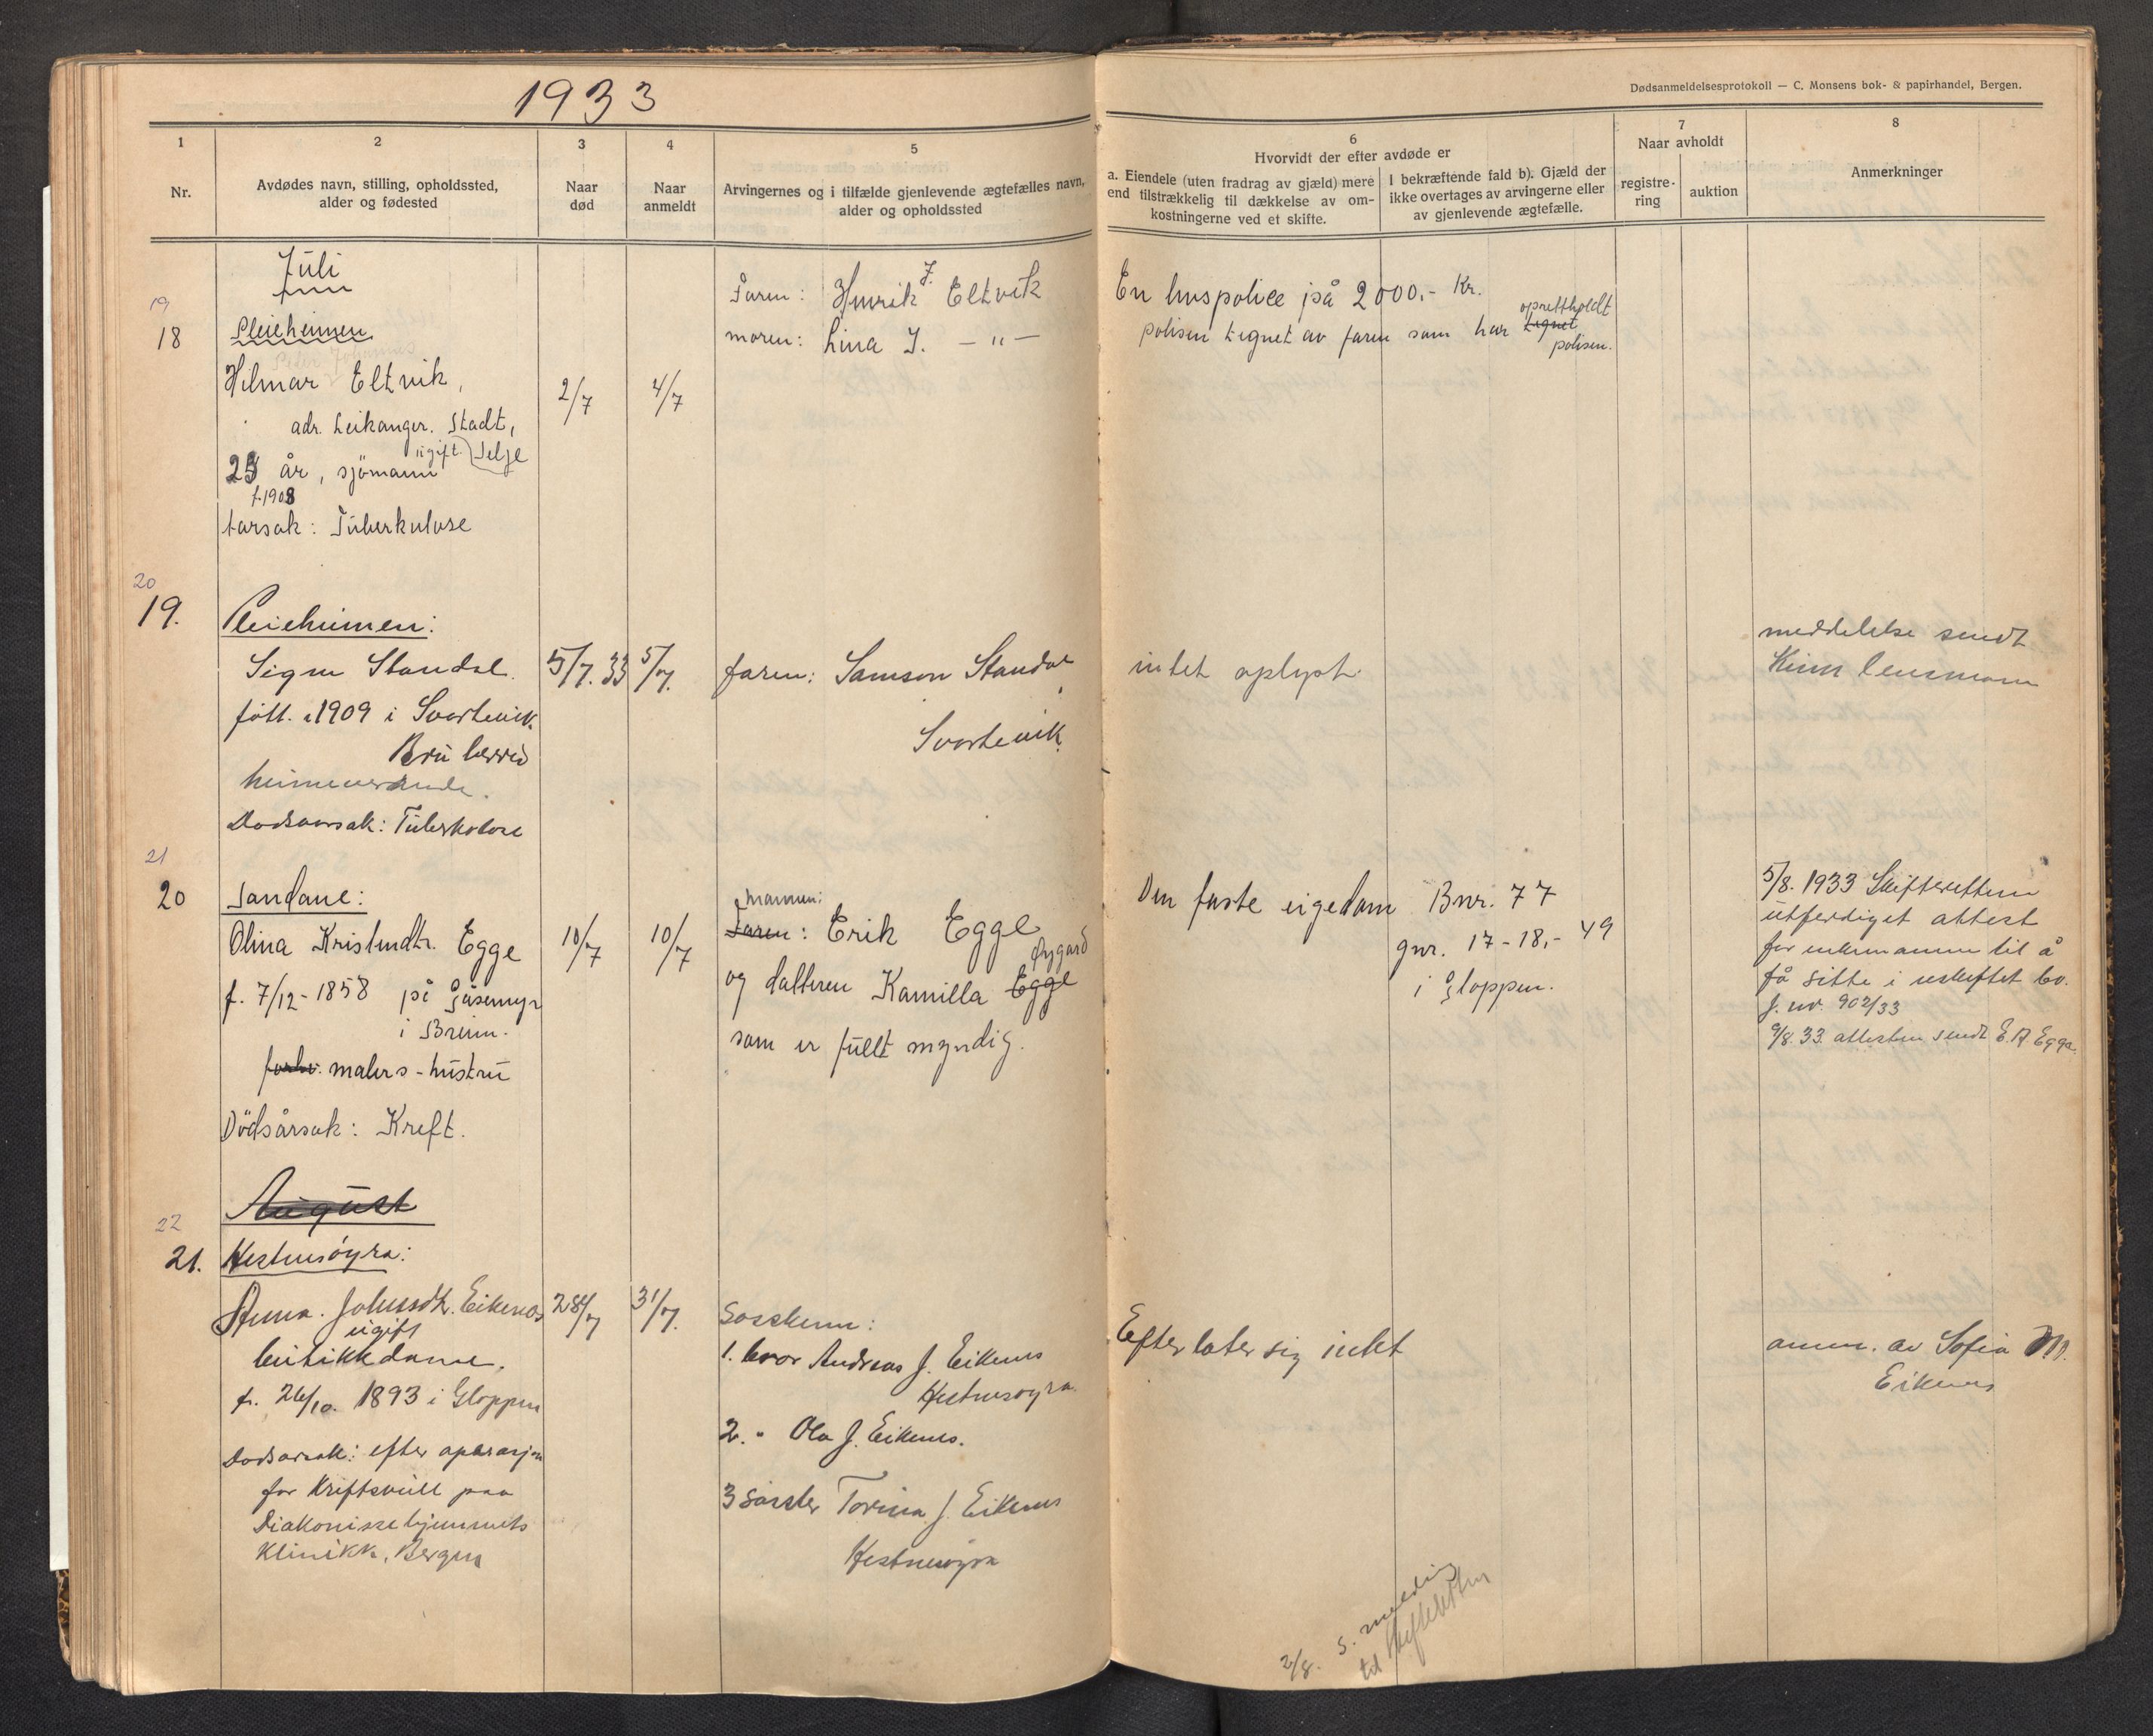 1933
Dødsanmeldelsesprotokoll — C. Monsens bok- & papirhandel, Bergen.
1
Nr.
2
Avdødes navn, stilling, opholdssted,
alder og fødested
3
Naar
død
4
Naar
anmeldt
5
Arvingernes og i tilfælde gjenlevende ægtefælles navn,
alder og opholdssted
6
Hvorvidt der efter avdøde er
a. Eiendele (uten fradrag av gjæld) mere
end tilstrækkelig til dækkelse av om-
kostningerne ved et skifte.
I bekræftende fald b). Gjæld der
ikke overtages av arvingerne eller
av gjenlevende ægtefælle.
7
Naar avholdt
registre-
ring
auktion
8
Anmerkninger
Juli
19
18
Pleieheimen
Hilmar Eltvik,
adr. Leikanger. Stadt,
ugift. Selje
25 år, sjömann
f. 1908
tarsak: Tuberkulose
2/7
4/7
Faren: Henrik J. Eltvik
moren: Lina J. — " —
En huspolice på 2000,- Kr.
oprettholdt
polisen tegnet av faren som har tegnet
polisen.
20
19.
Pleieheimen:
Signe Standal.
fött. i 1909 i Svortevik
Bru herred
heimeverande.
Dødsaarsak: Tuberkolose
5/7. 33
5/7.
faren: Samson Standal
Svortevik
intet oplyst.
meddelelse sendt
Kinn lensmann
21
20
Sandane:
Olina Kristendtr. Egge
f. 7/12-1858 på Gåsemyr
i Breim.
forhv. malers-hustru
Dödsårsak: Kreft.
10/7
10/7
mannen:
Faren: Erik Egge
og datteren Kamilla Egge Øygard
som er fullt myndig.
Den faste eigedom Bnr. 77
gnr. 17-18,- 49
i Gloppen.
5/8. 1933 Skifteretten
utferdiget attest
for enkemannen til å
få sitte i uskiftet bo.
J. nr. 902/33
9/8. 33. attesten sendt E. A. Egge.
August
22
21.
Hestnesøyra:
Anna. Johnsdtr. Eikenes
ugift
butikkdame.
f. 26/10. 1893 i Gloppen
Dødsarsak: efter operasjon
for Kreftsvill paa
Diakonissehjemmets
Klinikk, Bergen
28/7
31/7.
Søsken:
1. bror Andreas J. Eikenes
Hestnesøyra.
2. " Ola J. Eikenes.
3 søster Torina J. Eikenes
Hestnesøyra
Efterlater sig intet
anm. av Sofia M.
Eikenes
2/8. s. melding
til skifteretten